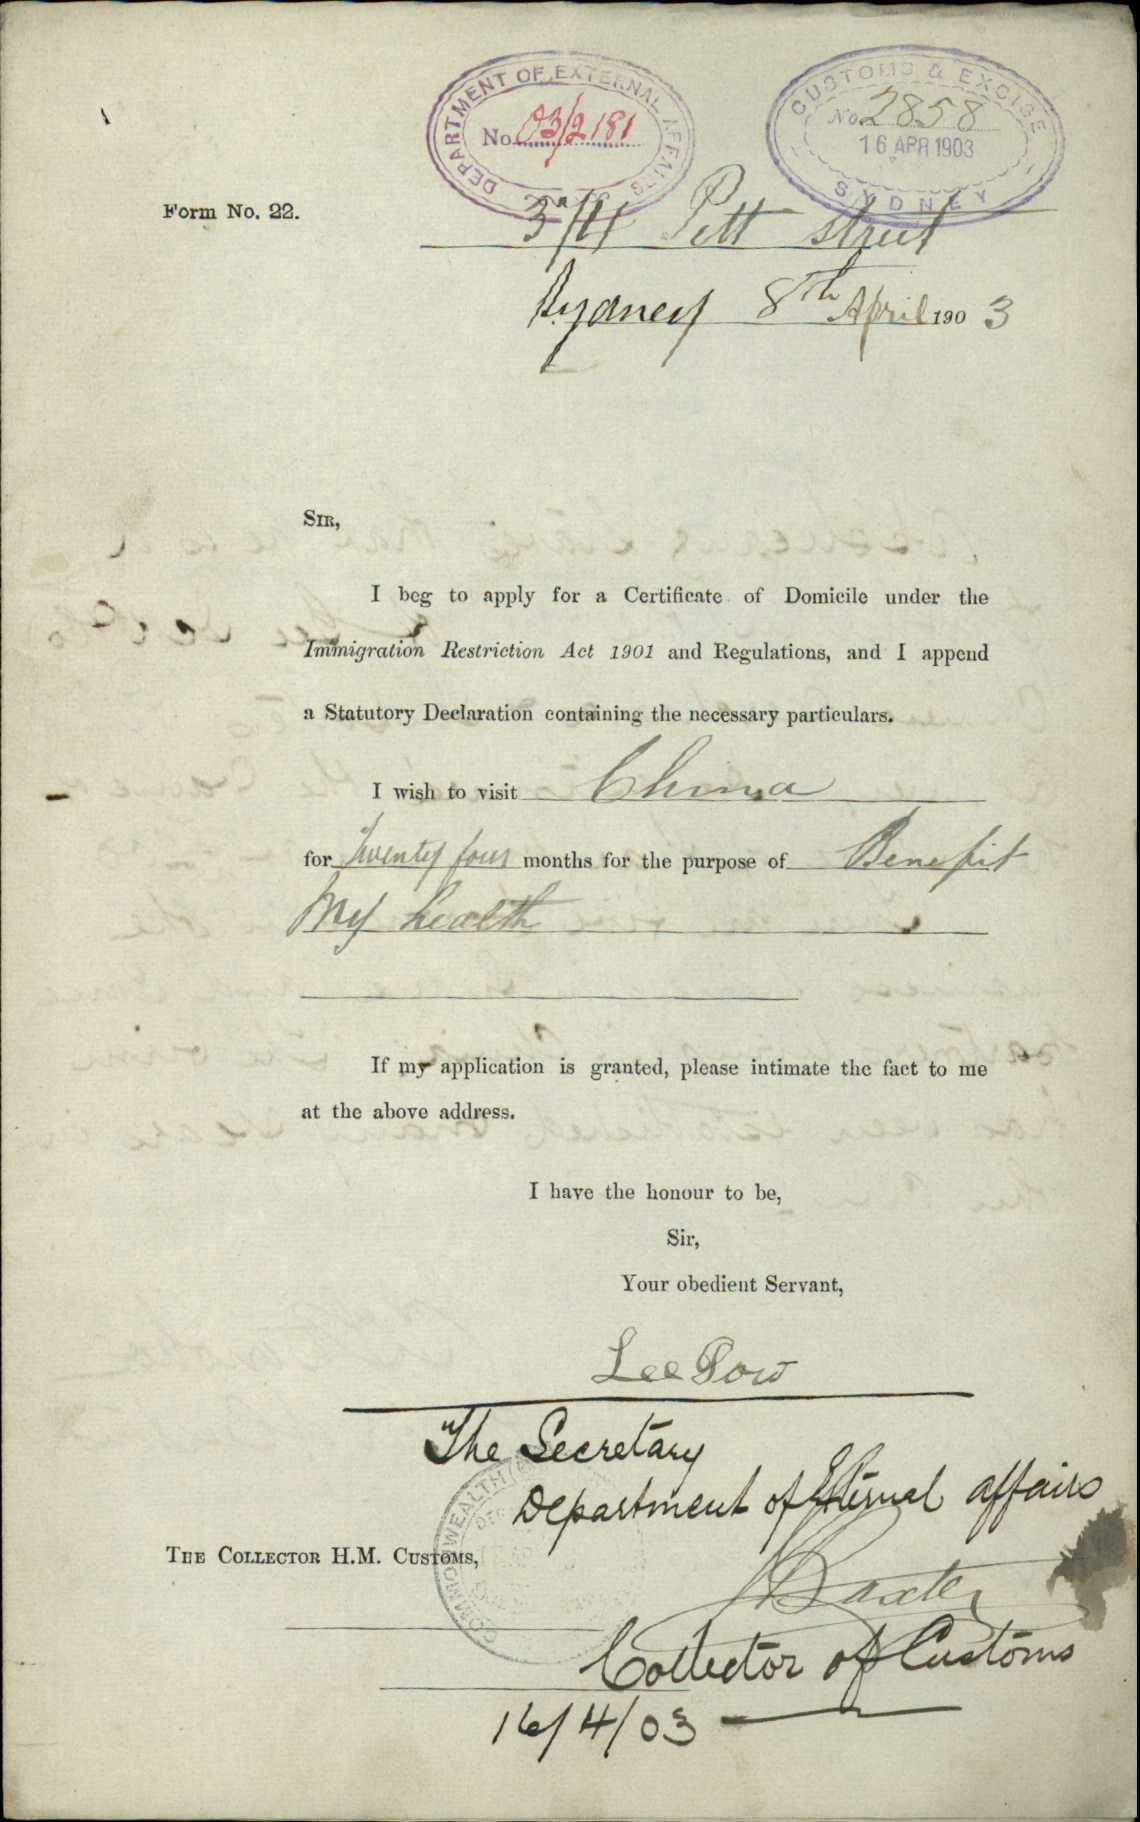 DEPARTMENT OF EXTERNAL AFFAIRS
No. 03/2181
CUSTOMS & EXCISE
No. 2858
16 APR 1903
SYDNEY
Form No. 22.
Pitt Street
Sydney 8th April 1903
SIR,
I beg to apply for a Certificate of Domicile under the
Immigration Restriction Act 1901 and Regulations, and I append
a Statutory Declaration containing the necessary particulars.
I wish to visit China
for Twenty four months for the purpose of Benefit
My health
If my application is granted, please intimate the fact to me
at the above address.
I have the honour to be,
Sir,
Your obedient Servant,
Lee Pow
The Secretary
Department of External affairs
COMMONWEALTH
THE COLLECTOR H.M. CUSTOMS,
Baxter
Collector of Customs
16/4/03